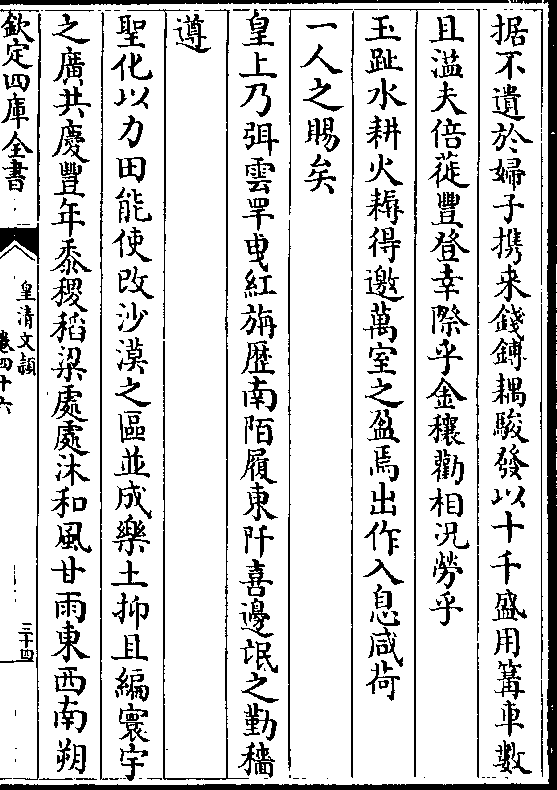 据不遺於婦子携来錢鎛耦駿發以十千盛用篝車數
且溢夫倍蓰豐登幸際乎金穰勸相況勞乎
玉趾水耕火耨得邀萬室之盈焉出作入息咸荷
一人之賜矣
皇上乃弭雲罕曵紅旃歴南陌履東阡喜邊氓之勤穡
遵
聖化以力田能使改沙漠之區並成樂土抑且編寰宇
之廣共慶豐年黍稷稻粱處處沐和風甘雨東西南朔
欽定四庫全書
皇清文頴
卷四十六
三十四